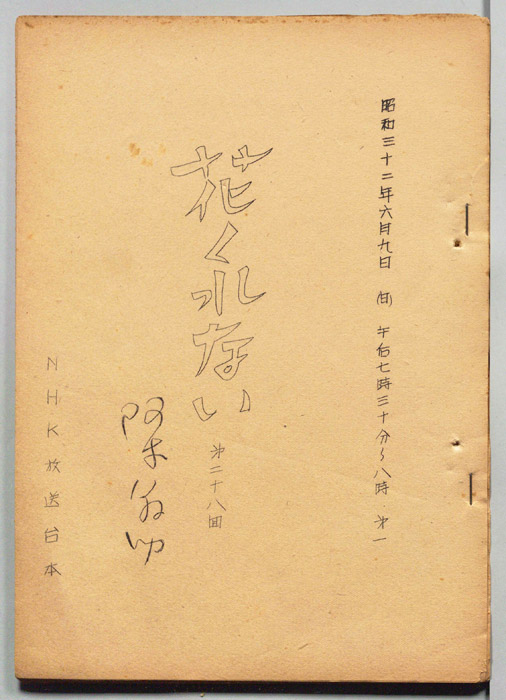 昭和三十二年六月九日 (日) 午后七時三十分〜八時 第一
花くれない
第二十八回
NHK放送台本